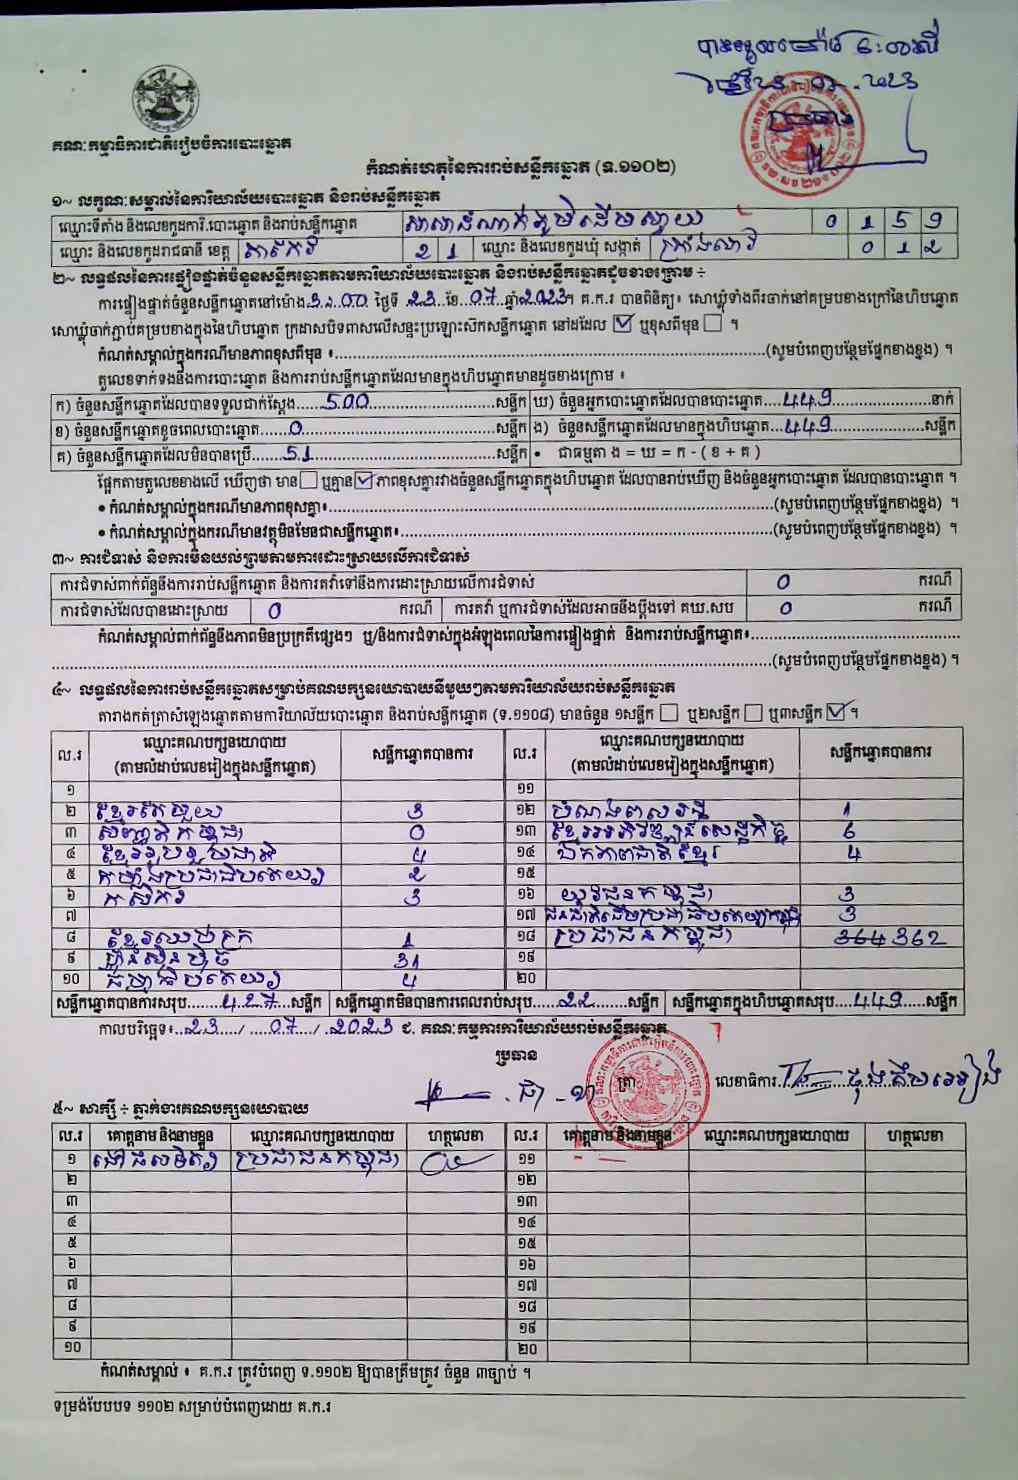 បានទទួលម៉ោង ៦:៣០
២៣ - ០៧ - ២០២៣
ប្រធាន
គណៈកម្មាធិការជាតិរៀបចំការបោះឆ្នោត
កំណត់ហេតុនៃការរាប់សន្លឹកឆ្នោត (ទ.១១០២)
១~ លក្ខណៈសម្គាល់នៃការិយាល័យបោះឆ្នោត និងរាប់សន្លឹកឆ្នោត
ឈ្មោះទីតាំង និងលេខកូដការិ.បោះឆ្នោត និងរាប់សន្លឹកឆ្នោត សាលាដំណាក់ភូមិដើមស្វាយ 0 1 5 9
ឈ្មោះ និងលេខកូដរាជធានី ខេត្ត តាកែវ 2 1 ឈ្មោះ និងលេខកូដឃុំ សង្កាត់ 0 1 2
២~ លទ្ធផលនៃការផ្ទៀងផ្ទាត់ចំនួនសន្លឹកឆ្នោតតាមការិយាល័យបោះឆ្នោត និងរាប់សន្លឹកឆ្នោតដូចខាងក្រោម ÷
ការផ្ទៀងផ្ទាត់ចំនួនសន្លឹកឆ្នោតនៅម៉ោង 3:00 ថ្ងៃទី 23 ខែ 07 ឆ្នាំ 2023។ គ.ក.រ បានពិនិត្យ៖ សោឃ្លុំទាំងពីរចាក់នៅគម្របខាងក្រៅនៃហិបឆ្នោត
សោឃ្លុំចាក់ភ្ជាប់គម្របខាងក្នុងនៃហិបឆ្នោត ក្រដាសបិទពាសលើសន្ទះប្រឡោះស៊កសន្លឹកឆ្នោត នៅដដែល ☑ ឬខុសពីមុន ☐ ។
កំណត់សម្គាល់ក្នុងករណីមានភាពខុសពីមុន ៖...(សូមបំពេញបន្ថែមផ្នែកខាងខ្នង) ។
តួលេខទាក់ទងនឹងការបោះឆ្នោត និងការរាប់សន្លឹកឆ្នោតដែលមានក្នុងហិបឆ្នោតមានដូចខាងក្រោម ៖
ក) ចំនួនសន្លឹកឆ្នោតដែលបានទទួលជាក់ស្ដែង...500...សន្លឹក ឃ) ចំនួនអ្នកបោះឆ្នោតដែលបានបោះឆ្នោត...449...នាក់
ខ) ចំនួនសន្លឹកឆ្នោតខូចពេលបោះឆ្នោត...0...សន្លឹក ង) ចំនួនសន្លឹកឆ្នោតដែលមានក្នុងហិបឆ្នោត...449...សន្លឹក
គ) ចំនួនសន្លឹកឆ្នោតដែលមិនបានប្រើ...51...សន្លឹក • ជាធម្មតា ង = ឃ = ក - ( ខ + គ )
ផ្អែកតាមតួលេខខាងលើ ឃើញថា មាន ☐ ឬគ្មាន ☑ ភាពខុសគ្នារវាងចំនួនសន្លឹកឆ្នោតក្នុងហិបឆ្នោត ដែលបានរាប់ឃើញ និងចំនួនអ្នកបោះឆ្នោត ដែលបានបោះឆ្នោត ។
• កំណត់សម្គាល់ក្នុងករណីមានភាពខុសគ្នា៖...(សូមបំពេញបន្ថែមផ្នែកខាងខ្នង) ។
• កំណត់សម្គាល់ក្នុងករណីមានវត្ថុមិនមែនជាសន្លឹកឆ្នោត៖...(សូមបំពេញបន្ថែមផ្នែកខាងខ្នង) ។
៣~ ការជំទាស់ និងការមិនយល់ព្រមតាមការដោះស្រាយលើការជំទាស់
ការជំទាស់ពាក់ព័ន្ធនឹងការរាប់សន្លឹកឆ្នោត និងការតវ៉ាទៅនឹងការដោះស្រាយលើការជំទាស់ 0 ករណី
ការជំទាស់ដែលបានដោះស្រាយ 0 ករណី ការតវ៉ា ឬការជំទាស់ដែលអាចនឹងប្ដឹងទៅ គឃ.សប 0 ករណី
កំណត់សម្គាល់ពាក់ព័ន្ធនឹងភាពមិនប្រក្រតីផ្សេងៗ ឬ/និងការជំទាស់ក្នុងអំឡុងពេលនៃការផ្ទៀងផ្ទាត់ និងការរាប់សន្លឹកឆ្នោត៖...
...(សូមបំពេញបន្ថែមផ្នែកខាងខ្នង) ។
៤~ លទ្ធផលនៃការរាប់សន្លឹកឆ្នោតសម្រាប់គណបក្សនយោបាយនីមួយៗតាមការិយាល័យរាប់សន្លឹកឆ្នោត
តារាងកត់ត្រាសំឡេងឆ្នោតតាមការិយាល័យបោះឆ្នោត និងរាប់សន្លឹកឆ្នោត (ទ.១១០៨) មានចំនួន ១សន្លឹក ☐ ឬ២សន្លឹក ☐ ឬ៣សន្លឹក ☑ ។
ល.រ ឈ្មោះគណបក្សនយោបាយ (តាមលំដាប់លេខរៀងក្នុងសន្លឹកឆ្នោត) សន្លឹកឆ្នោតបានការ ល.រ ឈ្មោះគណបក្សនយោបាយ (តាមលំដាប់លេខរៀងក្នុងសន្លឹកឆ្នោត) សន្លឹកឆ្នោតបានការ
១ ១១
២ ខ្មែរតែមួយ 3 ១២ 1
៣ 0 ១៣ ខ្មែរអភិវឌ្ឍន៍សេដ្ឋកិច្ច 6
៤ ខ្មែររួបរួមជាតិ 4 ១៤ ឯកភាពជាតិខ្មែរ 4
៥ កម្លាំងប្រជាធិបតេយ្យ 2 ១៥
៦ កសិករ 3 ១៦ យុវជនកម្ពុជា 3
៧ ១៧ ជនជាតិដើមប្រជាធិបតេយ្យកម្ពុជា 3
៨ ខ្មែរឈប់ក្រ 1 ១៨ ប្រជាជនកម្ពុជា 364 362
៩ ហ្វ៊ុនស៊ិនប៉ិច 31 ១៩
១០ ធម្មាធិបតេយ្យ 4 ២០
សន្លឹកឆ្នោតបានការសរុប...427...សន្លឹក សន្លឹកឆ្នោតមិនបានការពេលរាប់សរុប...22...សន្លឹក សន្លឹកឆ្នោតក្នុងហិបឆ្នោតសរុប...449...សន្លឹក
កាលបរិច្ឆេទ៖...23.../...07.../...2023 ជ. គណៈកម្មការការិយាល័យរាប់សន្លឹកឆ្នោត
ប្រធាន
ត្រា លេខាធិការ
៥~ សាក្សី ÷ ភ្នាក់ងារគណបក្សនយោបាយ
ល.រ គោត្តនាម និងនាមខ្លួន ឈ្មោះគណបក្សនយោបាយ ហត្ថលេខា ល.រ គោត្តនាម និងនាមខ្លួន ឈ្មោះគណបក្សនយោបាយ ហត្ថលេខា
១ ប្រជាជនកម្ពុជា ១១
២ ១២
៣ ១៣
៤ ១៤
៥ ១៥
៦ ១៦
៧ ១៧
៨ ១៨
៩ ១៩
១០ ២០
កំណត់សម្គាល់ ៖ គ.ក.រ ត្រូវបំពេញ ទ.១១០២ ឱ្យបានត្រឹមត្រូវ ចំនួន ៣ច្បាប់ ។
ទម្រង់បែបបទ ១១០២ សម្រាប់បំពេញដោយ គ.ក.រ